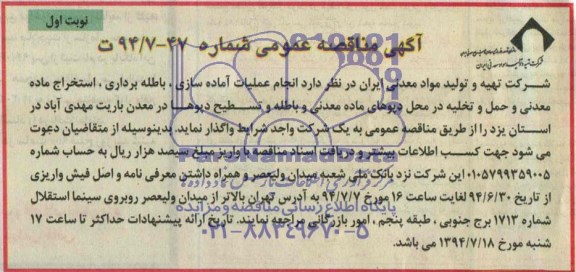 نوبت اول
آگهی مناقصه عمومی شماره ۴۷-۹۴/۷ ت
شرکت تهیه و تولید مواد معدنی ایران در نظر دارد انجام عملیات آماده سازی ، باطله برداری ، استخراج ماده
معدنی و حمل و تخلیه در محل دپوهای ماده معدنی و باطله و تسطیح دپوها در معدن باریت مهدی آباد در
استان یزد را از طریق مناقصه عمومی به یک شرکت واجد شرایط واگذار نماید. بدینوسیله از متقاضیان دعوت
می شود جهت کسب اطلاعات بیشتر و دریافت اسناد مناقصه با واریز مبلغ سیصد هزار ریال به حساب شماره
۰۱۰۵۷۹۹۳۵۹۰۰۵ این شرکت نزد بانک ملی شعبه میدان ولیعصر و همراه داشتن معرفی نامه و اصل فیش واریزی
از تاریخ ۹۴/۶/۳۰ لغایت ساعت ۱۶ مورخ ۹۴/۷/۷ به آدرس تهران بالاتر از میدان ولیعصر روبروی سینما استقلال
شماره ۱۷۱۳ برج جنوبی ، طبقه پنجم ، امور بازرگانی مراجعه نمایند. تاریخ ارائه پیشنهادات حداکثر تا ساعت ۱۷
شنبه مورخ ۱۳۹۴/۷/۱۸ می باشد.
ParsNamadData
پایگاه اطلاع رسانی مناقصه و مزایده
۰۲۱-۸۸۳۴۹۶۷۰-۵